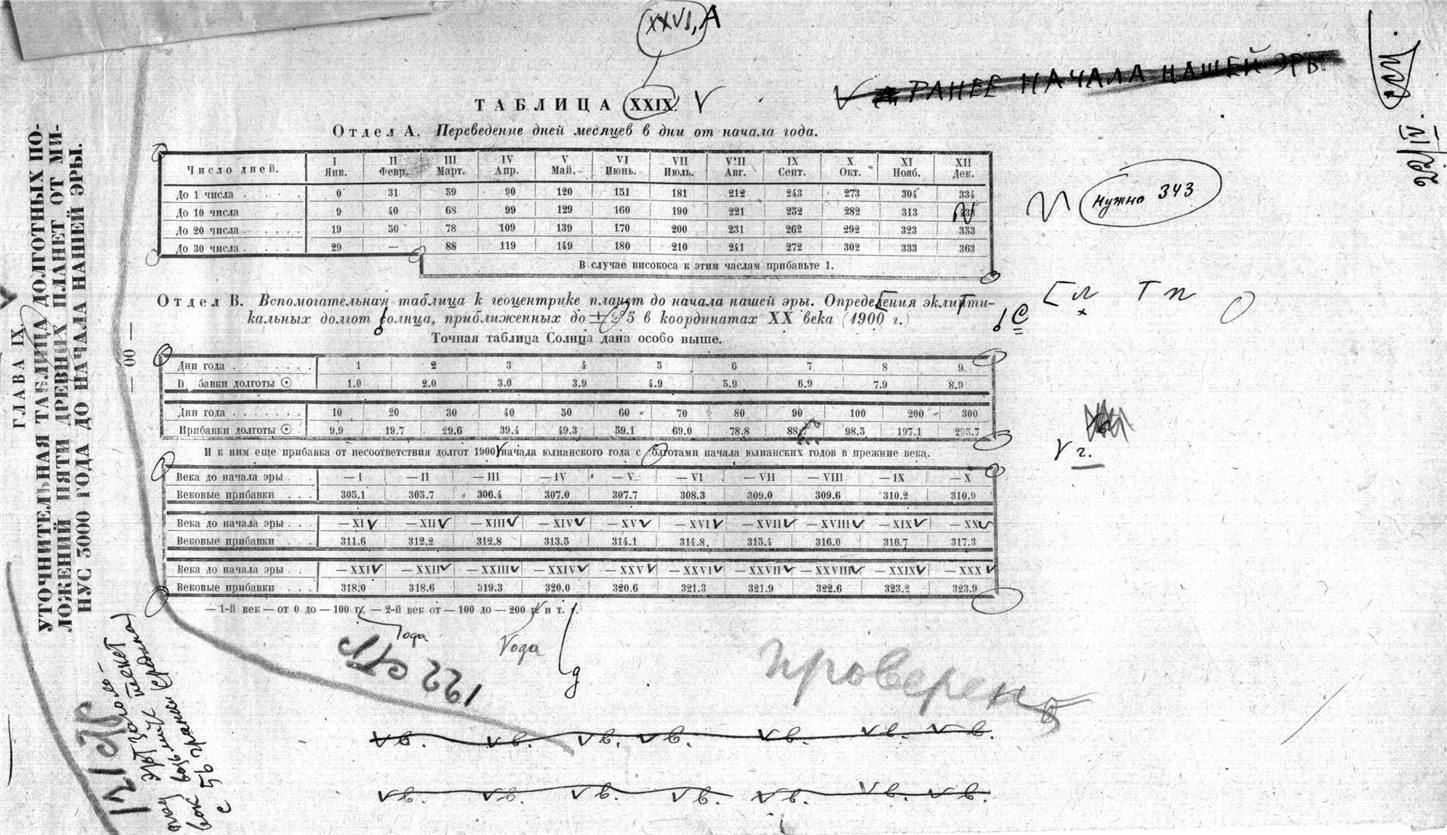 XXVI, А
РАНЕЕ НАЧАЛА НАШЕЙ ЭРЫ
22/IV.
ТАБЛИЦА XXIX.
Отдел А. Переведение дней месяцев в дни от начала года.
Число дней. I Янв. II Февр. III Март. IV Апр. V Май. VI Июнь. VII Июль. VIII Авг. IX Сент. X Окт. XI Нояб. XII Дек.
До 1 числа . . . . 0 31 59 90 120 151 181 212 243 273 304 334
До 10 числа . . . . 9 40 68 99 129 160 190 221 252 282 313
До 20 числа . . . . 19 50 78 109 139 170 200 231 262 292 323 353
До 30 числа . . . . 29 — 88 119 149 180 210 241 272 302 333 363
В случае високоса к этим числам прибавьте 1.
Нужно 343
Отдел В. Вспомогательная таблица к геоцентрике планет до начала нашей эры. Определения эклипти-
кальных долгот солнца, приближенных до ± 5 в координатах XX века (1900 г.)
Точная таблица Солнца дана особо выше.
Дни года . . . . . . 1 2 3 4 5 6 7 8 9
П бавки долготы ☉ 1.0 2.0 3.0 3.9 4.9 5.9 6.9 7.9 8.9
Дни года . . . . . . 10 20 30 40 50 60 70 80 90 100 200 300
Прибавки долготы ☉ . 9.9 19.7 29.6 39.4 49.3 59.1 69.0 78.8 88. 98.5 197.1 295.7
И к ним еще прибавка от несоответствия долгот 1900 начала юлианского года с долготами начала юлианских годов в прежние века.
г.
Века до начала эры — I — II — III — IV — V — VI — VII — VIII — IX — X
Вековые прибавки 305.1 305.7 306.4 307.0 307.7 308.3 309.0 309.6 310.2 310.9
Века до начала эры . . — XI — XII — XIII — XIV — XV — XVI — XVII — XVIII — XIX — XX
Вековые прибавки . . . 311.6 312.2 312.8 313.5 314.1 314.8 315.4 316.0 316.7 317.3
Века до начала эры . . — XXI — XXII — XXIII — XXIV — XXV — XXVI — XXVII — XXVIII — XXIX — XXX
Вековые прибавки . . . 318.0 318.6 319.3 320.0 320.6 321.3 321.9 322.6 323.2 323.9
— 1-й век — от 0 до — 100 г. — 2-й век от — 100 до — 200 г. и т.
года
года
д
122 стр
проверено
в. в. в. в. в. в. в.
в. в. в. в. в. в. в.
ГЛАВА IX
УТОЧНИТЕЛЬНАЯ ТАБЛИЦА ДОЛГОТНЫХ ПО-
ЛОЖЕНИЙ ПЯТИ ДРЕВНИХ ПЛАНЕТ ОТ МИ-
НУС 3000 ГОДА ДО НАЧАЛА НАШЕЙ ЭРЫ.
— 00 —
121 стр